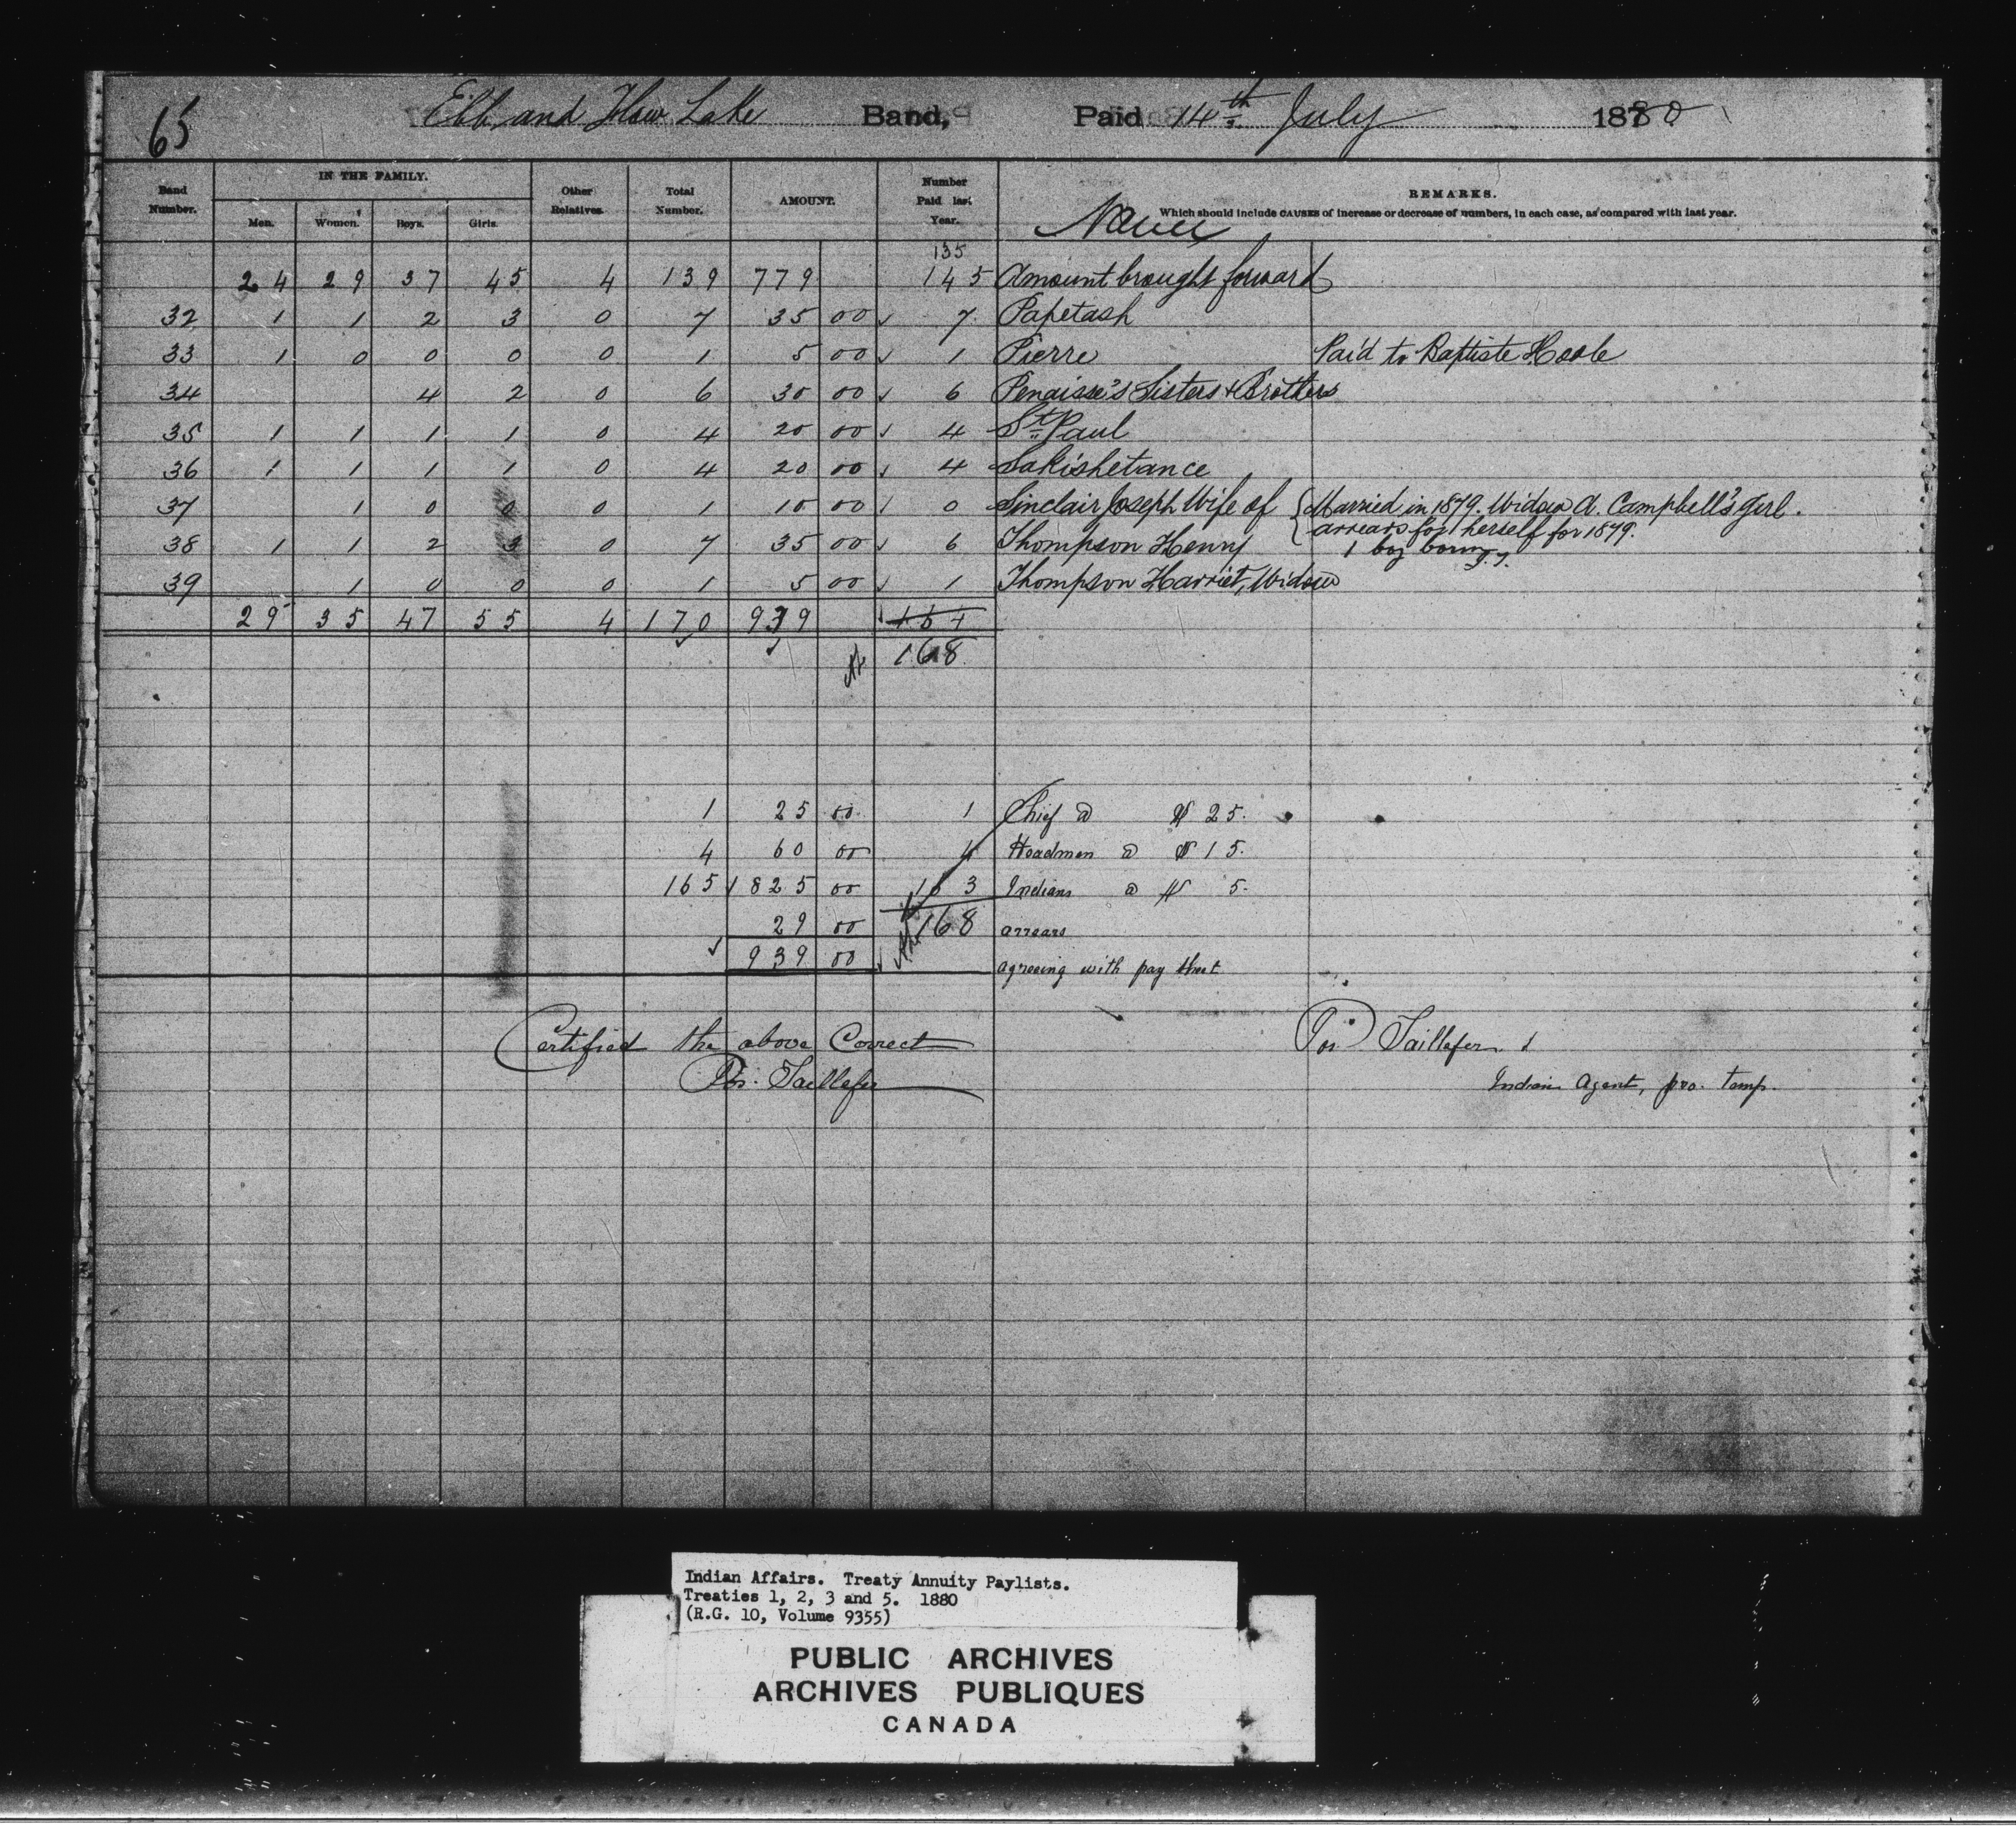 65 Ebb and Flow Lake Band, Paid 14th July 1880
Band Number. IN THE FAMILY. Other Relatives. Total Number. AMOUNT. Number Paid last Year. REMARKS.
Men. Women. Boys. Girls. Names Which should include CAUSES of increase or decrease of numbers, in each case, as compared with last year.
135
24 29 37 45 4 139 779 145 Amount brought forward
32 1 1 2 3 0 7 35 00 7 Papetash
33 1 0 0 0 0 1 5 00 1 Pierre Paid to Baptiste Hoole
34 4 2 0 6 30 00 6 Penaisse's Sisters & Brothers
35 1 1 1 1 0 4 20 00 4 St. Paul
36 1 1 1 1 0 4 20 00 4 Sakishetance
37 1 0 0 0 1 10 00 0 Sinclair Joseph Wife of { Married in 1879. Widow A. Campbell's girl.
arrears for herself for 1879.
38 1 1 2 3 0 7 35 00 6 Thompson Henry 1 boy born
39 1 0 0 0 1 5 00 1 Thompson Harriet, Widow
29 35 47 55 4 170 939
168
1 25 00 1 Chief @ $ 25.
4 60 00 4 Headmen @ $ 15.
165 825 00 163 Indians @ $ 5.
29 00 168 arrears
939 00 agreeing with pay sheet
Certified the above Correct Pos. Taillefer
Pos. Taillefer Indian Agent, pro. temp.
Indian Affairs. Treaty Annuity Paylists.
Treaties 1, 2, 3 and 5. 1880
(R.G. 10, Volume 9355)
PUBLIC ARCHIVES
ARCHIVES PUBLIQUES
CANADA